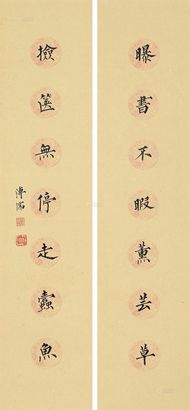 曝書不暇薰芸草
撿篋無停走蠹魚
溥濡